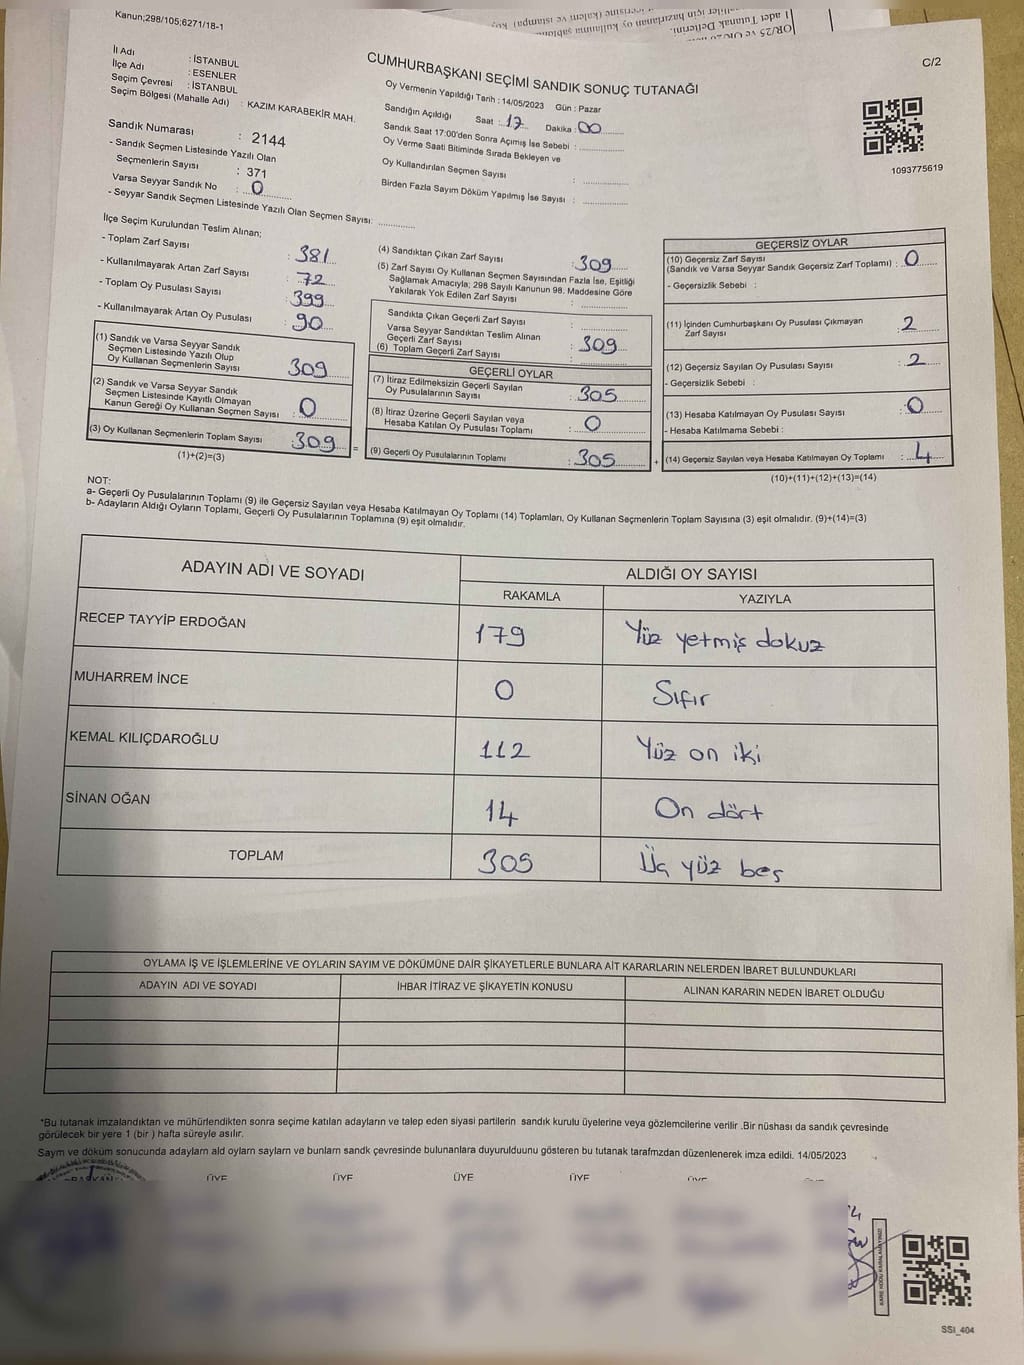 Kanun;298/105;6271/18-1
C/2
İl Adı : İSTANBUL
İlçe Adı : ESENLER
Seçim Çevresi : İSTANBUL
Seçim Bölgesi (Mahalle Adı) : KAZIM KARABEKİR MAH.
Sandık Numarası : 2144
- Sandık Seçmen Listesinde Yazılı Olan
Seçmenlerin Sayısı : 371
Varsa Seyyar Sandık No : 0
- Seyyar Sandık Seçmen Listesinde Yazılı Olan Seçmen Sayısı:
CUMHURBAŞKANI SEÇİMİ SANDIK SONUÇ TUTANAĞI
Oy Vermenin Yapıldığı Tarih : 14/05/2023 Gün : Pazar
Sandığın Açıldığı Saat : 17 Dakika : 00
Sandık Saat 17:00'den Sonra Açımış İse Sebebi :
Oy Verme Saati Bitiminde Sırada Bekleyen ve
Oy Kullandırılan Seçmen Sayısı :
Birden Fazla Sayım Döküm Yapılmış İse Sayısı :
1093775619
İlçe Seçim Kurulundan Teslim Alınan;
- Toplam Zarf Sayısı : 381
- Kullanılmayarak Artan Zarf Sayısı : 72
- Toplam Oy Pusulası Sayısı : 399
- Kullanılmayarak Artan Oy Pusulası : 90
(1) Sandık ve Varsa Seyyar Sandık
Seçmen Listesinde Yazılı Olup
Oy Kullanan Seçmenlerin Sayısı : 309
(2) Sandık ve Varsa Seyyar Sandık
Seçmen Listesinde Kayıtlı Olmayan
Kanun Gereği Oy Kullanan Seçmen Sayısı : 0
(3) Oy Kullanan Seçmenlerin Toplam Sayısı 309
(1)+(2)=(3)
=
(4) Sandıktan Çıkan Zarf Sayısı : 309
(5) Zarf Sayısı Oy Kullanan Seçmen Sayısından Fazla İse, Eşitliği
Sağlamak Amacıyla; 298 Sayılı Kanunun 98. Maddesine Göre
Yakılarak Yok Edilen Zarf Sayısı :
Sandıkta Çıkan Geçerli Zarf Sayısı :
Varsa Seyyar Sandıktan Teslim Alınan
Geçerli Zarf Sayısı :
(6) Toplam Geçerli Zarf Sayısı : 309
GEÇERLİ OYLAR
(7) İtiraz Edilmeksizin Geçerli Sayılan
Oy Pusulalarının Sayısı : 305
(8) İtiraz Üzerine Geçerli Sayılan veya
Hesaba Katılan Oy Pusulası Toplamı : 0
(9) Geçerli Oy Pusulalarının Toplamı : 305
+
GEÇERSİZ OYLAR
(10) Geçersiz Zarf Sayısı
(Sandık ve Varsa Seyyar Sandık Geçersiz Zarf Toplamı) : 0
- Geçersizlik Sebebi :
(11) İçinden Cumhurbaşkanı Oy Pusulası Çıkmayan
Zarf Sayısı : 2
(12) Geçersiz Sayılan Oy Pusulası Sayısı : 2
- Geçersizlik Sebebi :
(13) Hesaba Katılmayan Oy Pusulası Sayısı : 0
- Hesaba Katılmama Sebebi :
(14) Geçersiz Sayılan veya Hesaba Katılmayan Oy Toplamı : 4
(10)+(11)+(12)+(13)=(14)
NOT:
a- Geçerli Oy Pusulalarının Toplamı (9) ile Geçersiz Sayılan veya Hesaba Katılmayan Oy Toplamı (14) Toplamları, Oy Kullanan Seçmenlerin Toplam Sayısına (3) eşit olmalıdır. (9)+(14)=(3)
b- Adayların Aldığı Oyların Toplamı, Geçerli Oy Pusulalarının Toplamına (9) eşit olmalıdır.
ADAYIN ADI VE SOYADI ALDIĞI OY SAYISI
RAKAMLA YAZIYLA
RECEP TAYYİP ERDOĞAN 179 Yüz yetmiş dokuz
MUHARREM İNCE 0 Sıfır
KEMAL KILIÇDAROĞLU 112 Yüz on iki
SİNAN OĞAN 14 On dört
TOPLAM 305 Üç yüz beş
OYLAMA İŞ VE İŞLEMLERİNE VE OYLARIN SAYIM VE DÖKÜMÜNE DAİR ŞİKAYETLERLE BUNLARA AİT KARARLARIN NELERDEN İBARET BULUNDUKLARI
ADAYIN ADI VE SOYADI İHBAR İTİRAZ VE ŞİKAYETİN KONUSU ALINAN KARARIN NEDEN İBARET OLDUĞU
*Bu tutanak imzalandıktan ve mühürlendikten sonra seçime katılan adayların ve talep eden siyasi partilerin sandık kurulu üyelerine veya gözlemcilerine verilir .Bir nüshası da sandık çevresinde
görülecek bir yere 1 (bir ) hafta süreyle asılır.
Saym ve döküm sonucunda adaylarn ald oylarn saylarn ve bunlarn sandk çevresinde bulunanlara duyurulduunu gösteren bu tutanak tarafmzdan düzenlenerek imza edildi. 14/05/2023
BAŞKAN ÜYE ÜYE ÜYE ÜYE ÜYE
KARE KODU KARALAMAYINIZ!
SSI_404